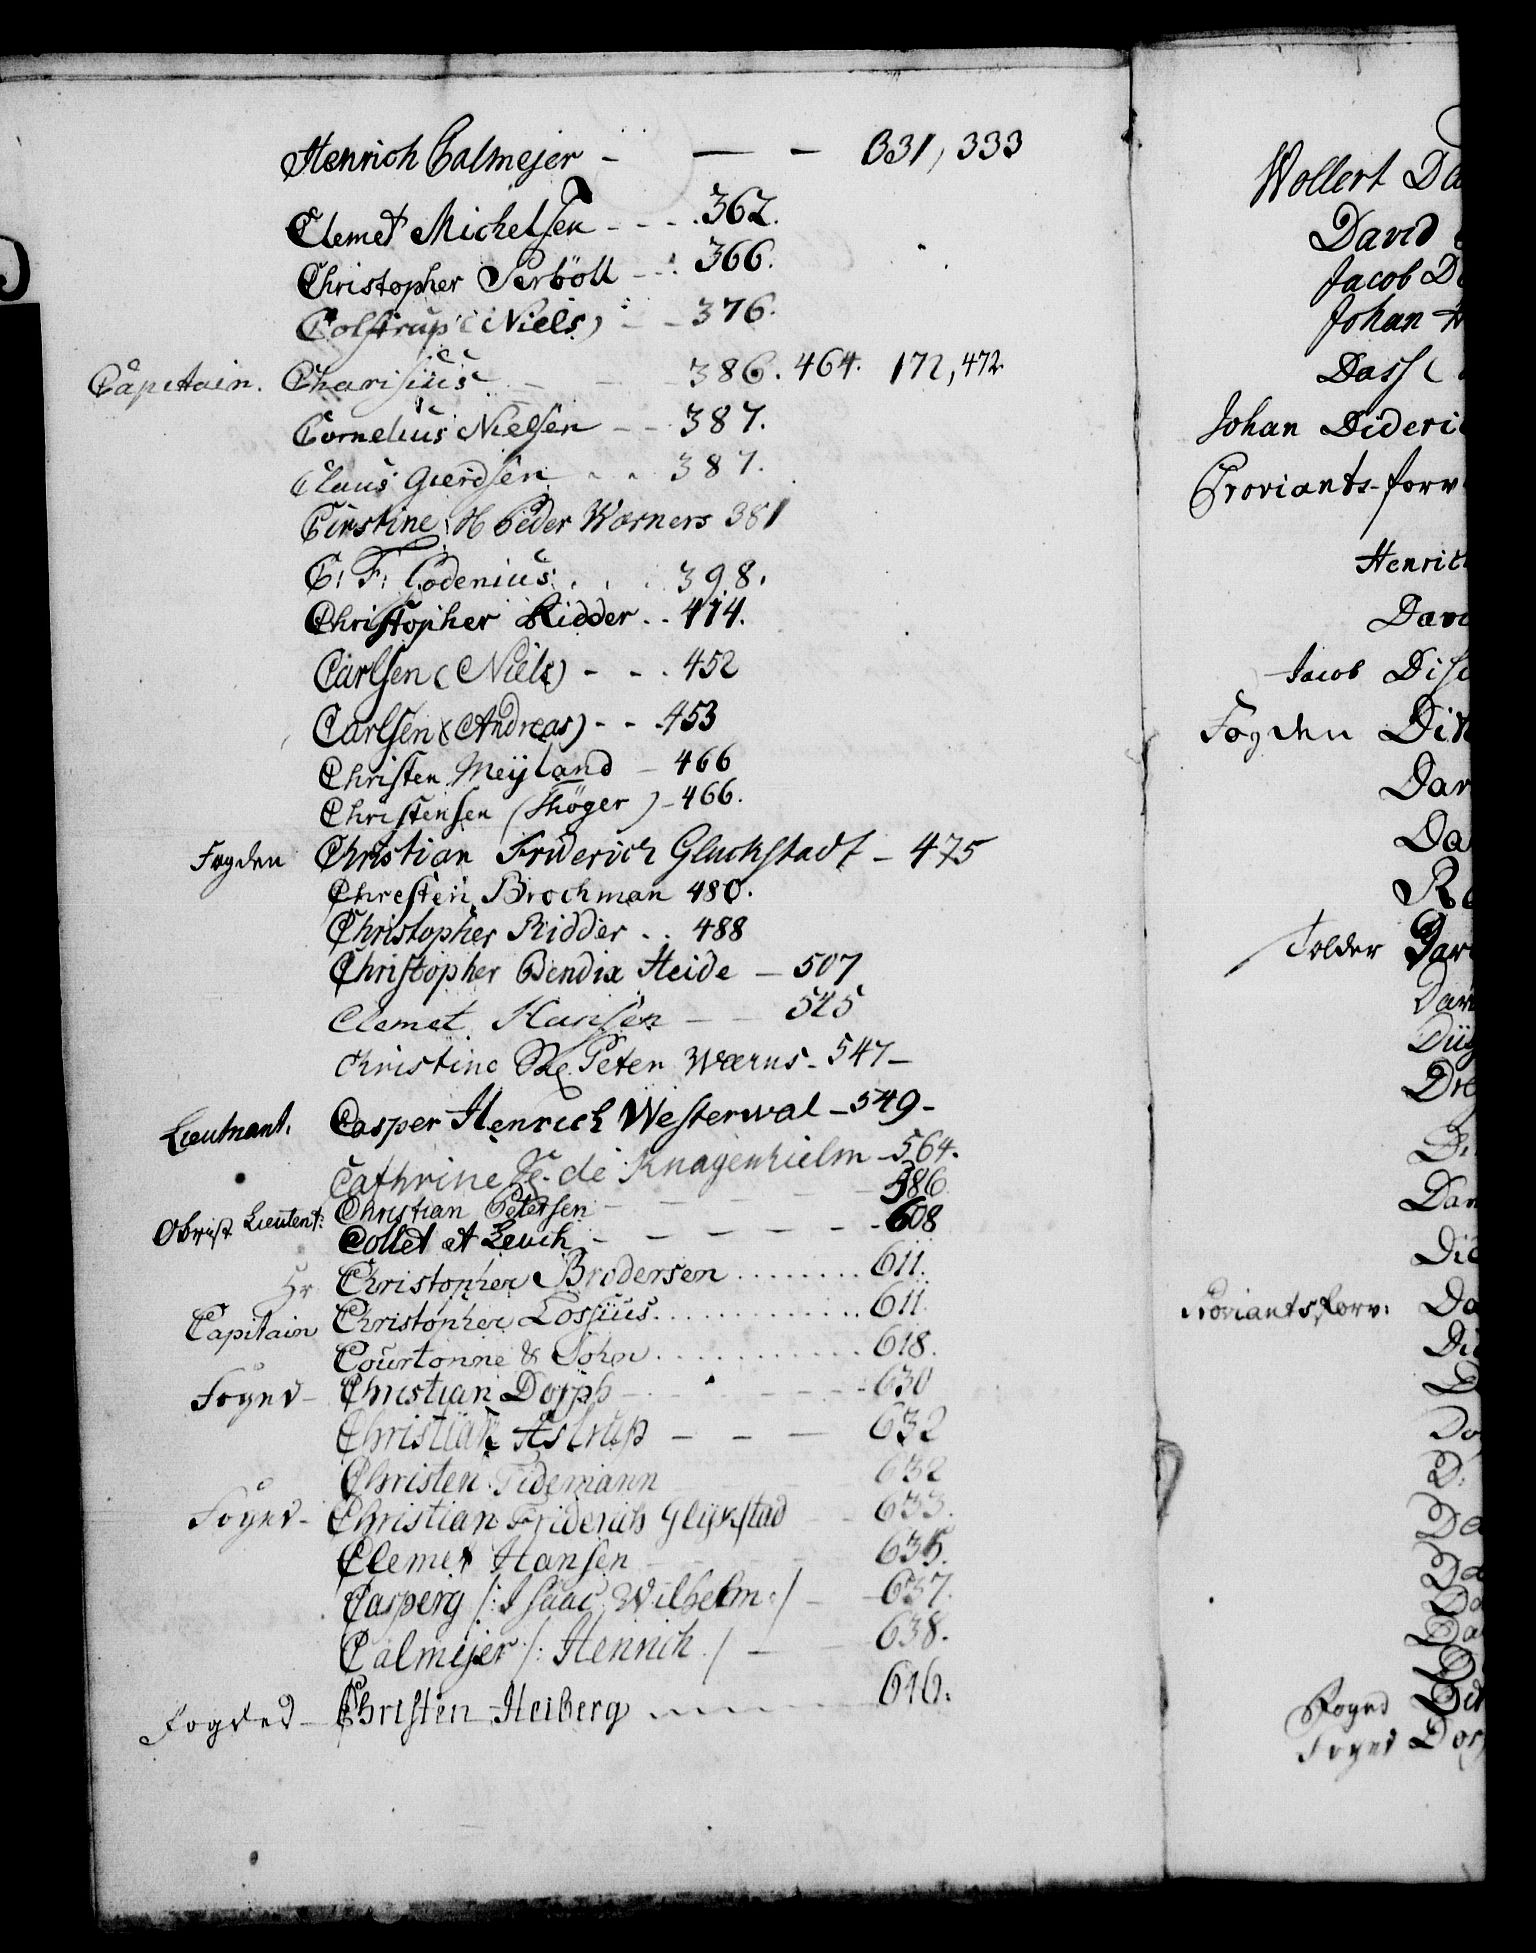 Henrich Calmejer - — - 331, 333
Clemet Michelsen - - . 362.
Christopher Perböll - . 366.
Colstrup (Niels) - - 376.
Capitain. Charisius - - - 386. 464. 172, 472.
Cornelius Nielsen - - 387.
Claus Gierdsen . . 387.
Cirstine H Peder Wærners 381
C: F: Codenius . . . 398.
Christopher Ridder . . 414.
Carlsen (Niels) - - . 452
Carlsen (Andreas) - - . 453
Christen Meyland - 466
Christensen (Thöger) - 466.
Fogden Christian Friderich Gluckstadt - 475
Chresten Brochman 480.
Christopher Ridder . . 488
Christopher Bendix Heide - 507
Clemet Hansen - - 525
Christine Peter Wærns - 547 -
Lieutnant. Casper Henrich Westerwal - 549 -
Cathrine de Knagenhielm - 564.
Christian Petersen - - - - 586
Obrist Lieutent: Collet et Leuch - - - - - 608
Hr Christopher Brodersen ........ 611.
Capitain Christopher Lossius ............ 611.
Courtonne & Sohn ........... 618.
Foged - Christian Dorph - - - - - 630
Christian Astrup - - - 632
Christen Tidemann 632
Foged - Christian Friderich Glykstad - - 633.
Clemet Hansen - - - - 635.
Casperg /: Isaac Wilhelm :/ - - 637.
Calmejer /: Henrich :/ - - 638.
Fogded - Christen Heiberg ........ 646.
Wollert Da
David
Jacob D
Johan
Dass
Johan Dideric
Proviants-forv
Henrich
Davi
Jacob Dis
Fogden Dit
Dar
Da
Tolder Dar
Dav
Dan
Proviantsforv: Da
Foged
Foged Dor